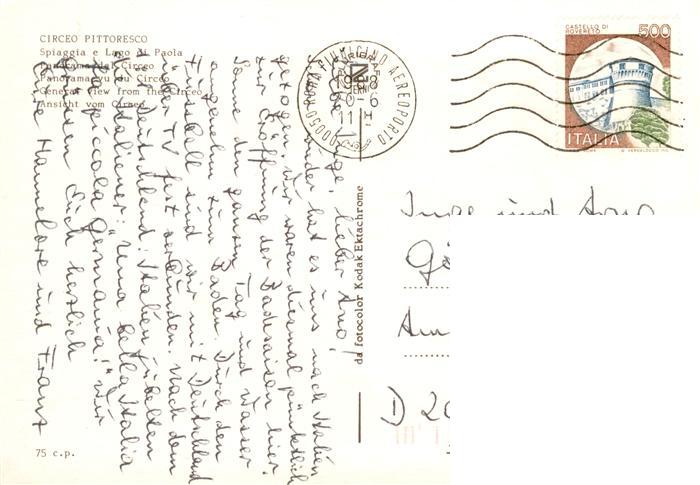 CIRCEO PITTORESCO
Spiaggia e Lago di Paola
Panorama dal Circeo
Panorama vu du Circeo
General view from the Circeo
Ansicht vom Circeo
Inge, lieber Arno!
wieder hat es uns nach Italien
gezogen. Wir waren diesmal pünktlich
zur Eröffnung der Badesaison hier.
Sonne den ganzen Tag und Wasser
angenehm zum Baden. Durch den
Fussball sind wir mit Deutschland
über TV fest verbunden. Nach dem
Deutschland: Italien jubelten
Italiener: "Una bella Italia
piccola Germania!" Wir
grüssen Euch herzlich
Eure Hannelore und Franz
75 c.p.
da fotocolor Kodak Ektachrome
00050 ROMA FIUMICINO AEREOPORTO
CASTELLO DI ROVERETO
500
ITALIA
Inge und Arno
Am
D 20